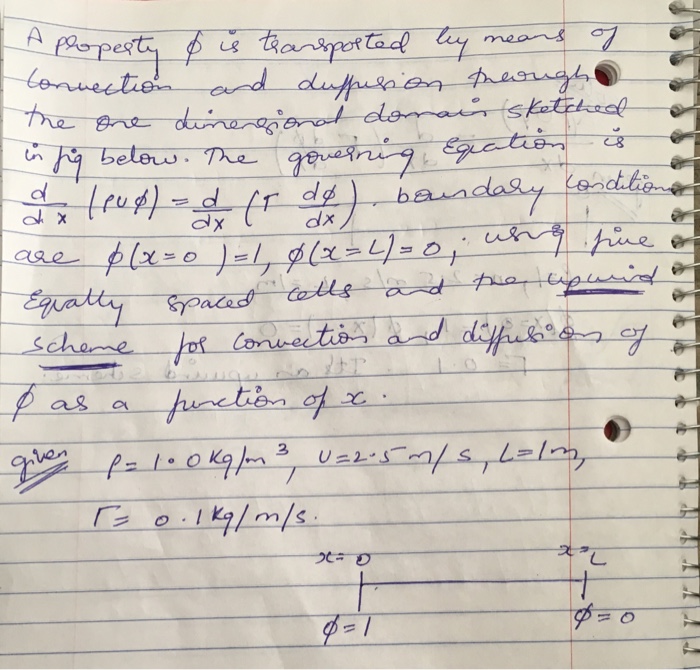 A property ϕ is transported by means of
convection and duffusion through
the one dimensional domain sketched
in fig below. The governing Equation is
d/dx (ρuϕ) = d/dx (Γ dϕ/dx). boundary conditions
are ϕ(x=0)=1, ϕ(x=L)=0; using five
Equally spaced cells and the upwind
scheme for convection and diffusion of
ϕ as a function of x.
given ρ=1.0 kg/m³, U=2.5 m/s, L=1m,
Γ= 0.1 kg/m/s.
x=0 x=L
ϕ=1 ϕ=0